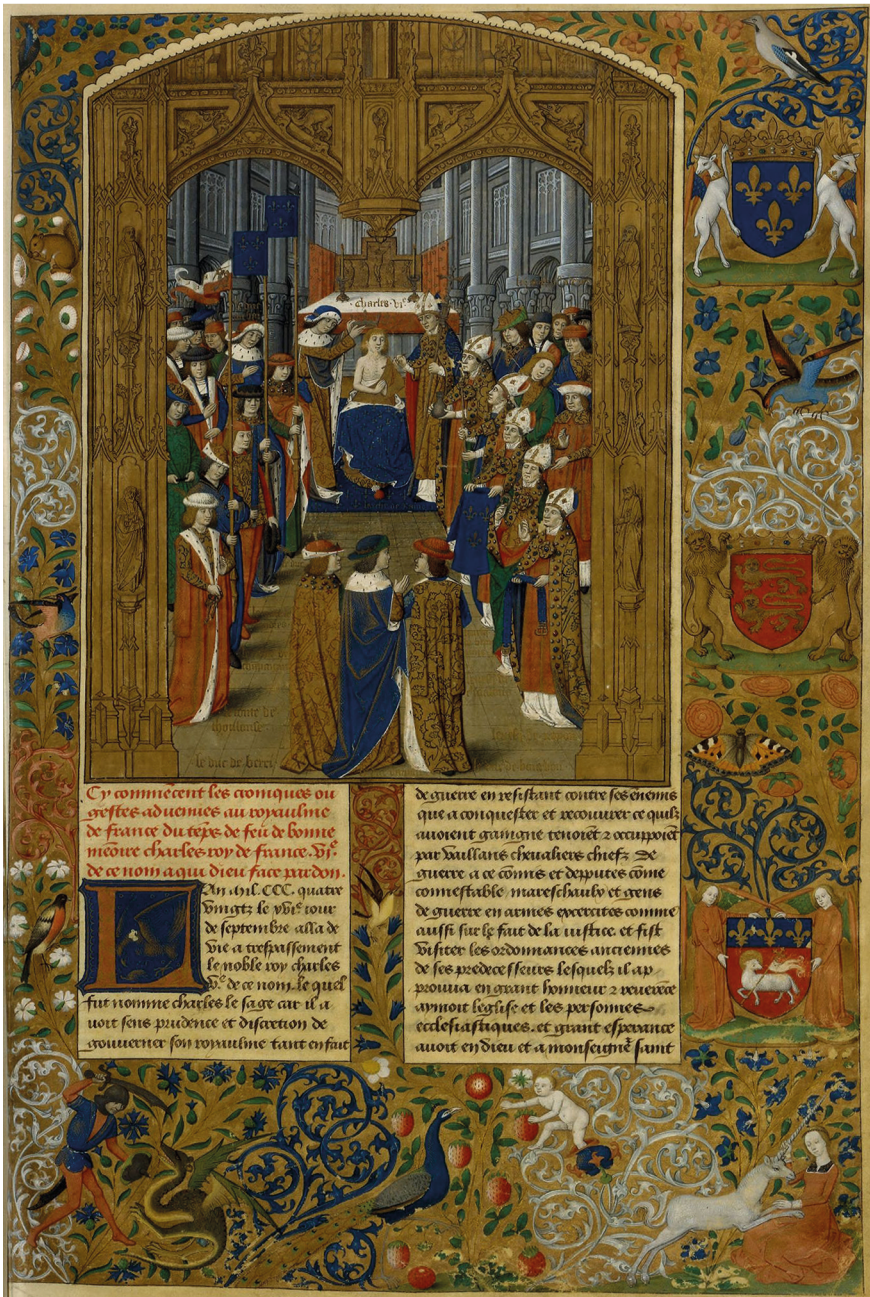 Charles .vi.e
thoulouse
le duc de berri
Cy commēcent les croniques ou
gestes aduenues au royaulme
de france du tēps de feu de bonne
memoire charles roy de france .vi.e
de ce nom a qui dieu face pardon.
L An mil .CCC. quatre
vingtz le xvi.e iour
de septembre alla de
vie a trespassement
le noble roy charles
v.e de ce nom. le quel
fut nomme charles le sage car il a
uoit sens prudence et discretion de
gouuerner son royaulme tant en fait
de guerre en resistant contre ses enemis
que a conquester et recouurer ce quilz
auoient gaingne tenoiēt ⁊ occupoiēt
par vaillans cheualiers chiefz de
guerre a ce cōmis et deputes cōme
connestable, mareschaulx et gens
de guerre en armes excercites comme
aussi sur le fait de la iustice. et fist
visiter les ordonnances anciennes
de ses predecesseurs lesquelz il ap
prouua en grant honneur ⁊ reuerēce
aymoit leglise et les personnes
ecclesiastiques. et grant esperance
auoit en dieu et a monseignēr saint